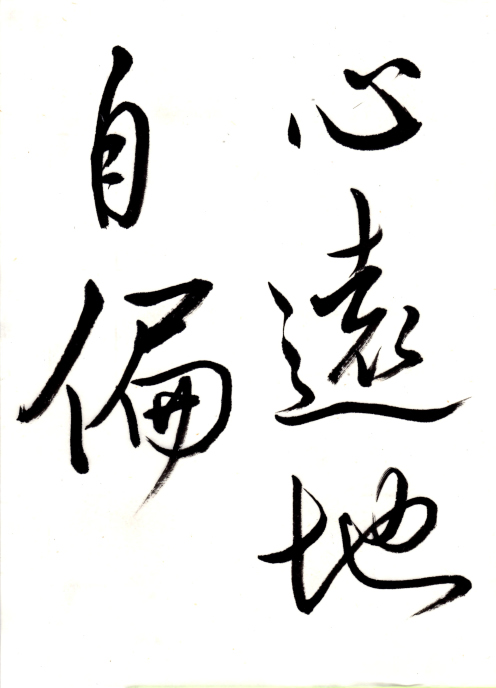 心遠地
自偏